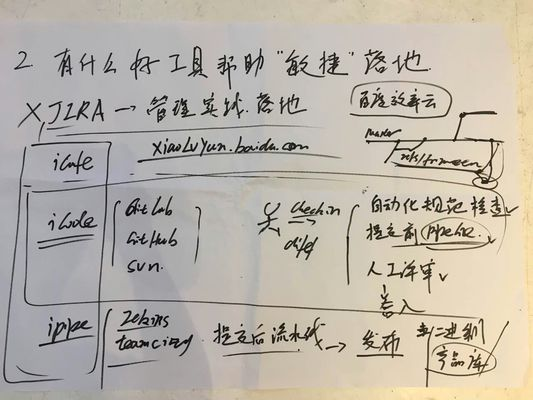 2. 有什么好工具帮助"敏捷"落地
X JIRA → 管理实践落地
百度效率云
xiaolvyun.baidu.com
master
icafe
icode
GitLab
GitHub
svn.
checkin
自动化规范检查
提交前 pipeline
人工评审
ipipe
Jekins
teamcity
提交后流水线 → 发布
产品库